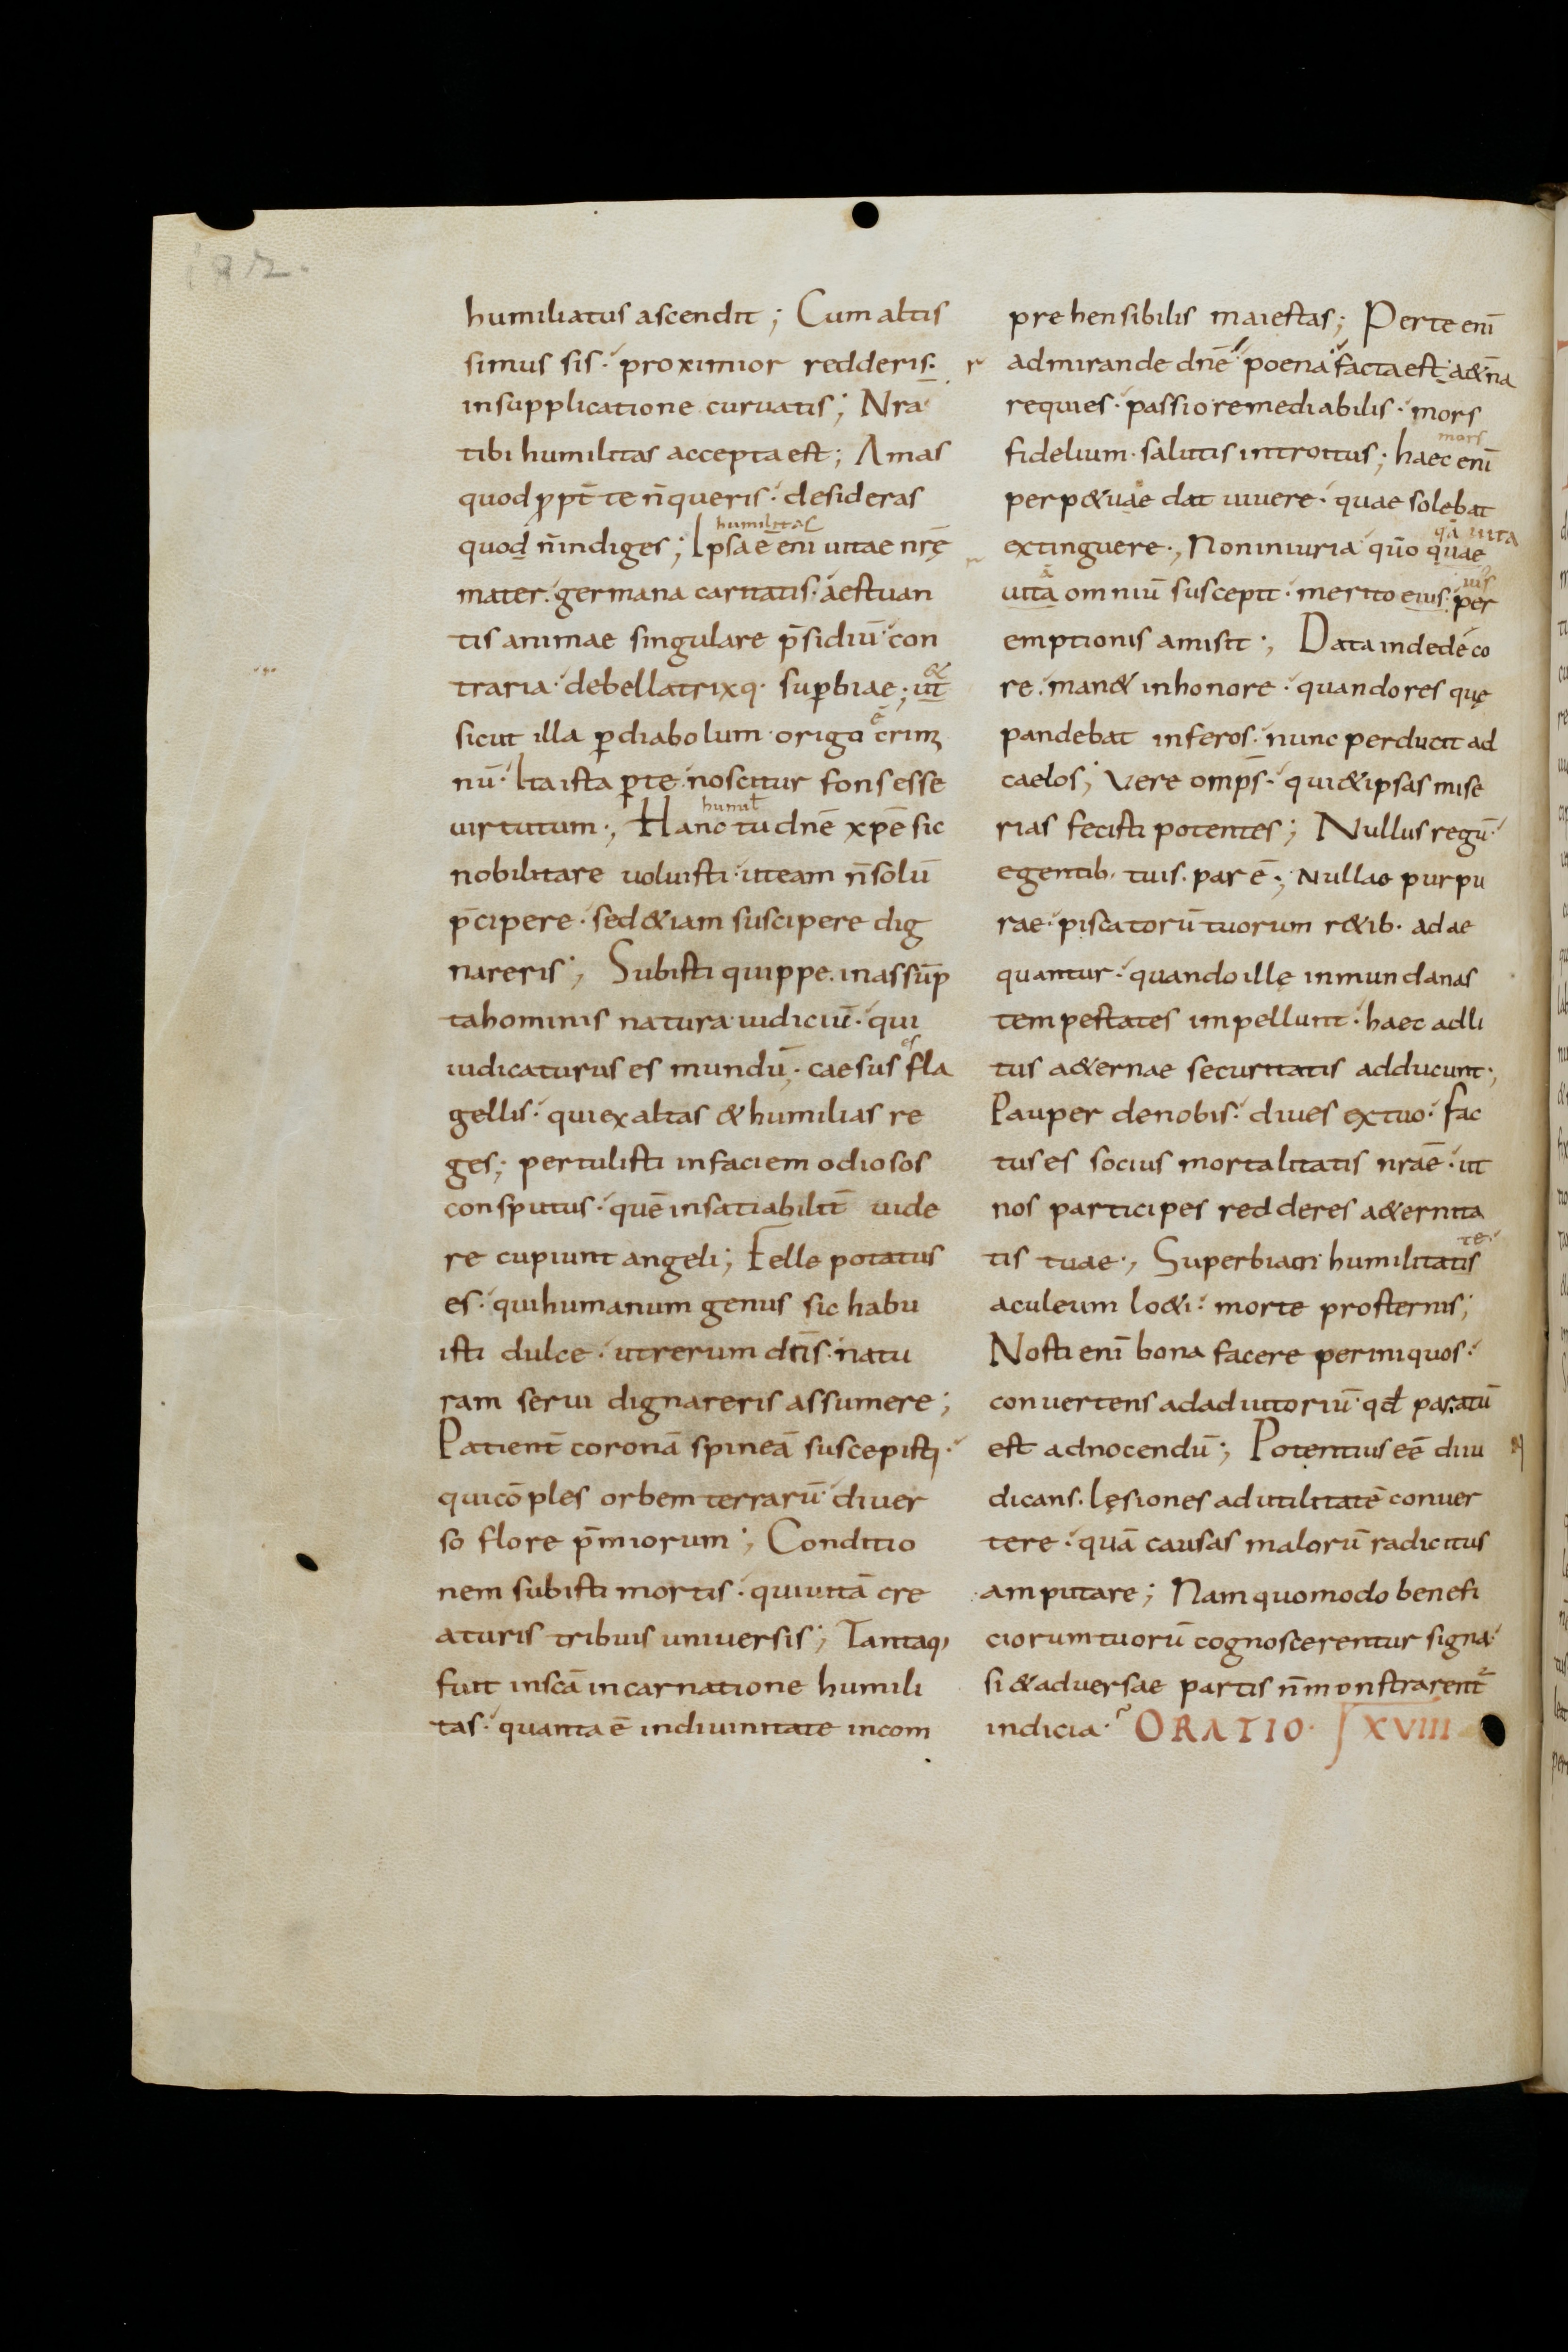 192.
humiliatus ascendit; Cum altis
simus sis· proximior redderis·
in supplicatione curuatis; Nra
tibi humilitas accepta est; Amas
quod ꝓpt̄ te n̄ queris· desideras
humilitas
quod n̄ indiges; Ipsa ē eni uitae nrę̄
mater· germana caritatis· aestuan
tis animae singulare p̄sidiū con
&
traria· debellatrixq· suꝑbiae; ut
ē
sicut illa ꝑ diabolum origo crimi
nū· Ita ista ꝑ te noscitur fons esse
humil̄
uirtutum; Hanc tu dnē xp̄e sic
nobilitare uoluisti· ut eam n̄ solū
p̄cipere· sed &iam suscipere dig
nareris; Subisti quippe· in assūp
ta hominis natura iudiciū· qui
es
iudicaturus es mundū· caesus fla
gellis· qui exaltas & humilias re
ges; pertulisti in faciem odiosos
consputus· quē insatiabilit̄ uide
re cupiunt angeli; Felle potatus
es· qui humanum genus sic habu
isti dulce· ut rerum dn̄s· natu
ram serui dignareris assumere;
Patient̄ coronā spineā suscepisti·
qui cōples orbem terrarū diuer
so flore p̄miorum; Conditio
nem subisti mortis· qui uitā cre
aturis tribuis uniuersis; Tantaq,
fuit in scā incarnatione humili
tas· quanta ē in diuinitate incom
prehensibilis maiestas; Per te enī
admirande dnē poena facta est· a&n̄a
requies· passio remediabilis· mors
mors
fidelium· salutis introitus; haec enī
perp&uae dat uiuere· quae solebat
qā uita
extinguere; Non iniuria quō quae
ā
ius
uita omniū suscepit· merito eius· per
emptionis amisit; Data in dedeco
re· man& in honore· quando res quę
pandebat inferos· nunc perducit ad
caelos; Vere omp̄s· qui & ipsas mise
rias fecisti potentes; Nullus regū
egentib· tuis· par ē; Nullae purpu
rae· piscatorū tuorum r&ib· adae
quantur· quando illę in mundanas
tempestates impellunt· haec ad li
tus a&ernae securitatis adducunt;
Pauper de nobis· diues ex tuo· fac
tus es socius mortalitatis nrāe· ut
nos participes redderes a&ernita
te
tis tuae; Superbiam humilitatis
aculeum lo&i· morte prosternis;
Nosti enī bona facere per iniquos·
conuertens ad adiutoriū qđ paratū
est ad nocendū; Potentius eē diiu
dicans· lęsiones ad utilitatē conuer
tere· quā causas malorū radicitus
amputare; Nam quomodo benefi
ciorum tuorū cognoscerentur signa·
si & aduersae partis n̄ monstrarent̄
indicia· ORATIO· XVIII